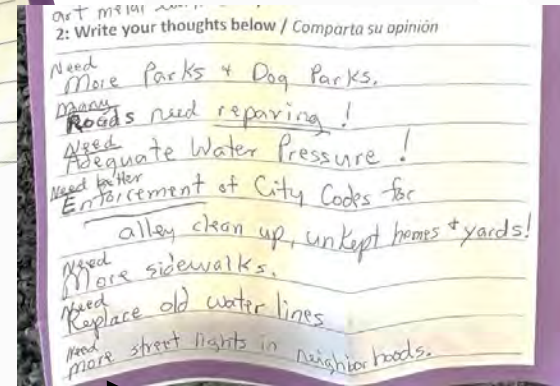 art metal
2: Write your thoughts below / Comparta su opinión
Need
More Parks + Dog Parks.
Many
Roads need reparing!
Need
Adequate Water Pressure!
Need better
Enforcement of City Codes for
alley clean up, unkept homes + yards!
Need
More sidewalks.
Need
Replace old water lines
Need
more street lights in neighborhoods.